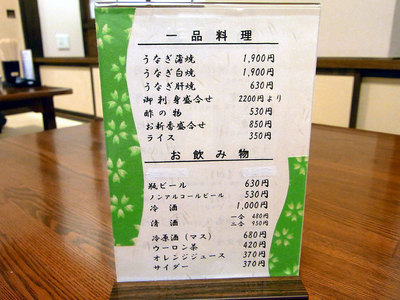 一品料理
うなぎ蒲焼 1,900円
うなぎ白焼 1,900円
うなぎ肝焼 630円
御刺身盛合せ 2200円より
酢の物 530円
お新香盛合せ 850円
ライス 350円
お飲み物
瓶ビール 630円
ノンアルコールビール 530円
冷酒 1,000円
清酒 一合 480円
二合 950円
冷原酒(マス) 680円
ウーロン茶 420円
オレンジジュース 370円
サイダー 370円